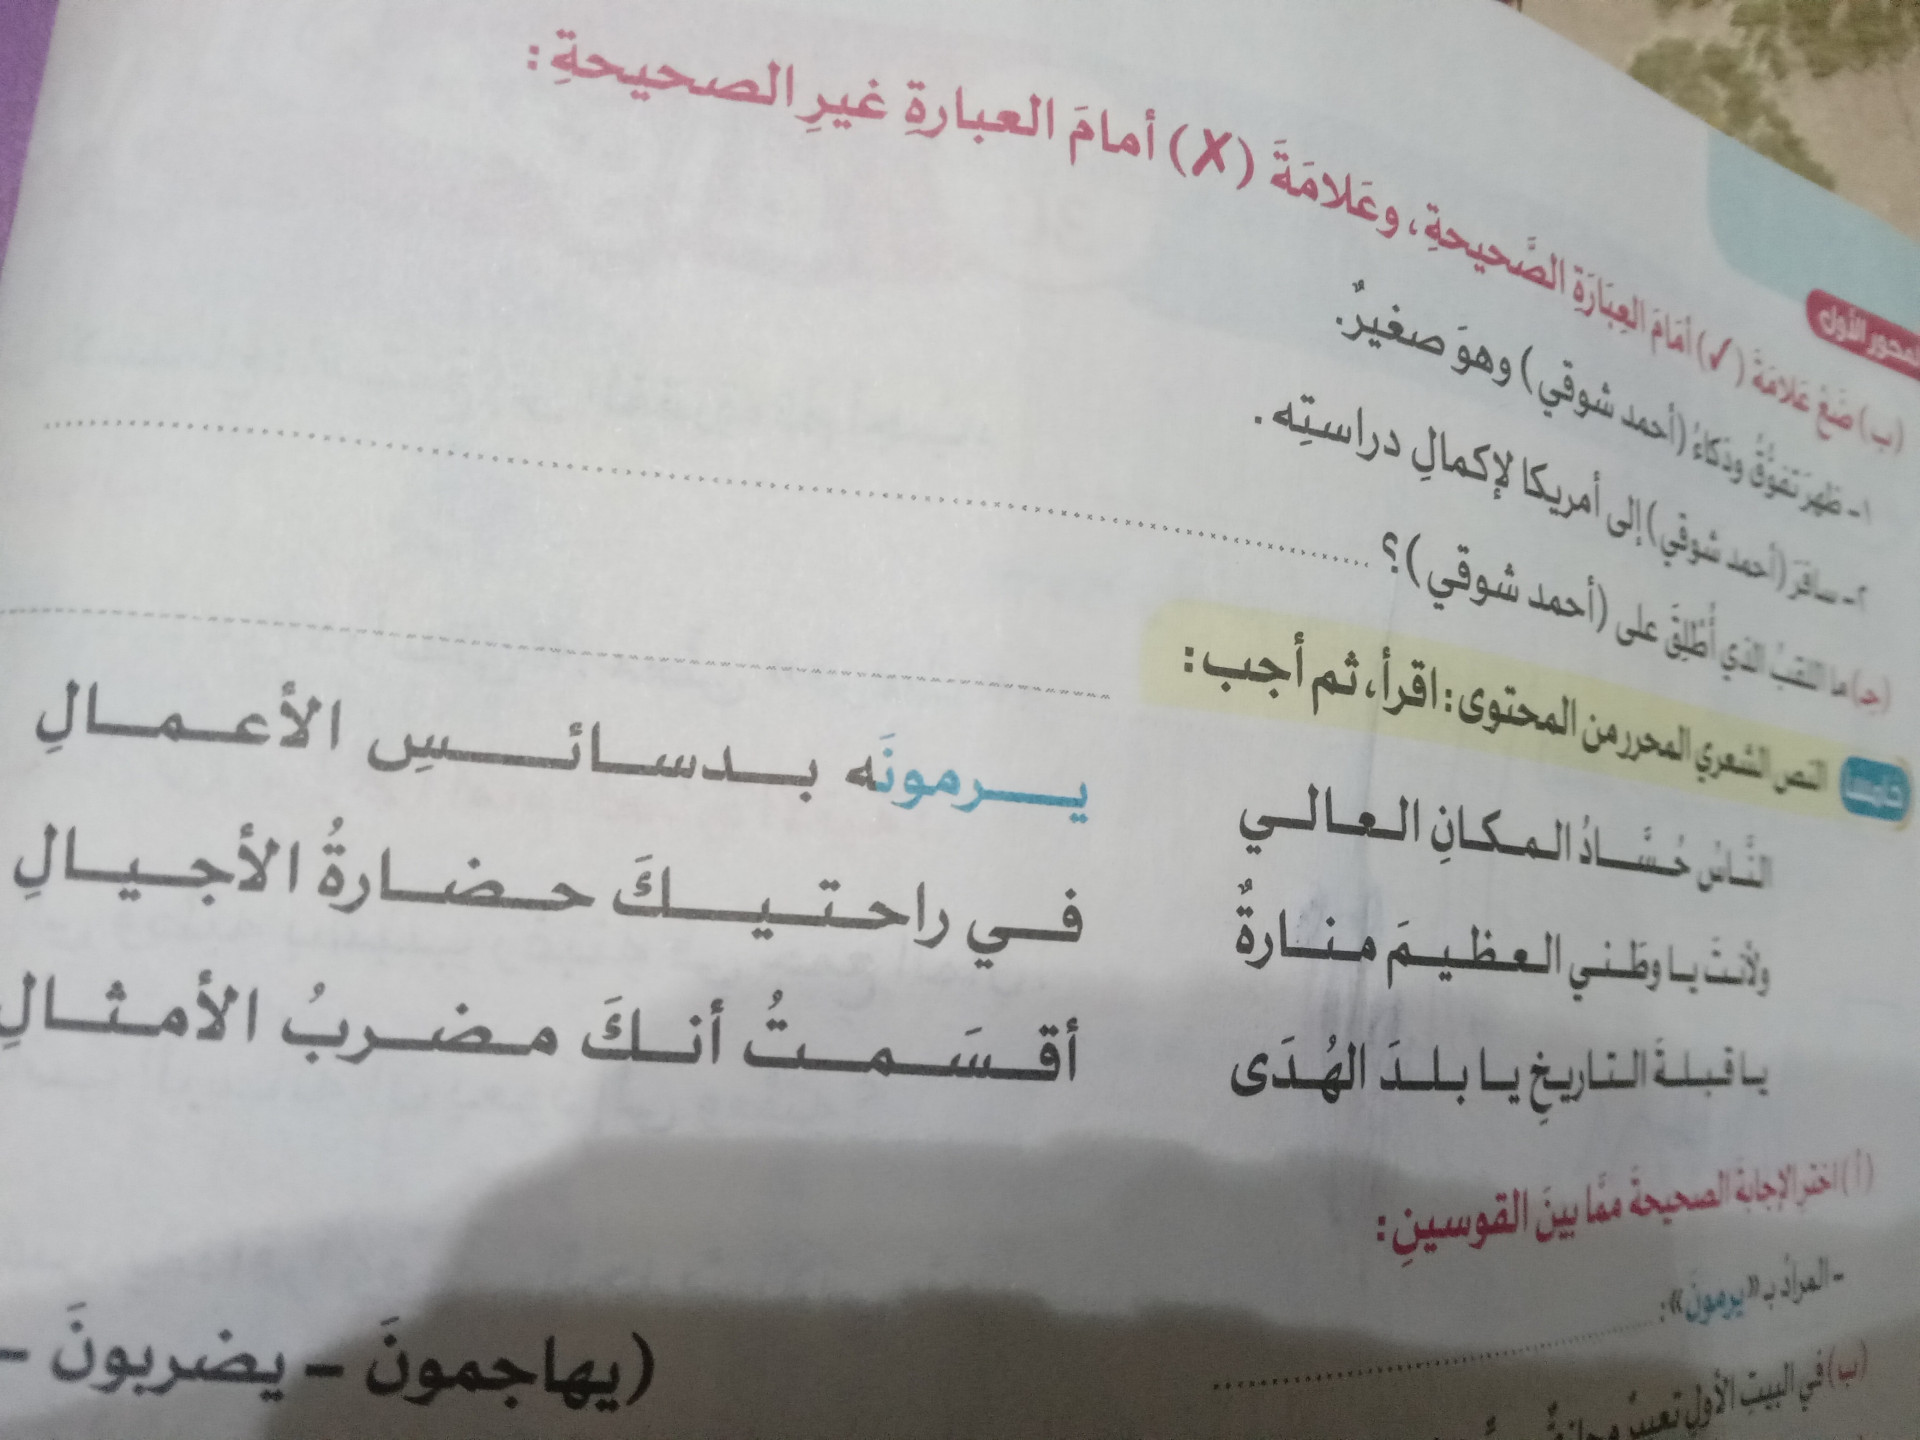 المحور الأول
(ب) ضَعْ عَلامَةَ (✓) أمَامَ العِبَارَةِ الصَّحيحةِ، وعَلامَةَ (X) أمامَ العبارةِ غيرِ الصحيحةِ:
١- ظهرَ تفوُّقُ وذكاءُ (أحمد شوقي) وهوَ صغيرٌ.
٢- سافرَ (أحمد شوقي) إلى أمريكا لإكمالِ دراستِه.
(جـ) ما اللقبُ الذي أُطْلِقَ على (أحمد شوقي)؟
خامسا النص الشعري المحرر من المحتوى: اقرأ، ثم أجب:
النَّاسُ حُسَّادُ المكانِ العالي يرمونَه بدسائسِ الأعمالِ
ولأنتَ يا وطَني العظيمَ منارةٌ في راحتيكَ حضارةُ الأجيالِ
يا قبلةَ التاريخِ يا بلدَ الهُدَى أقسَمتُ أنكَ مضربُ الأمثالِ
(أ) اختر الإجابةَ الصحيحةَ ممَّا بينَ القوسينِ:
- المرادُ بـ «يرمونَ»: (يهاجمونَ - يضربونَ -
(ب) في البيتِ الأولِ تعبيرٌ